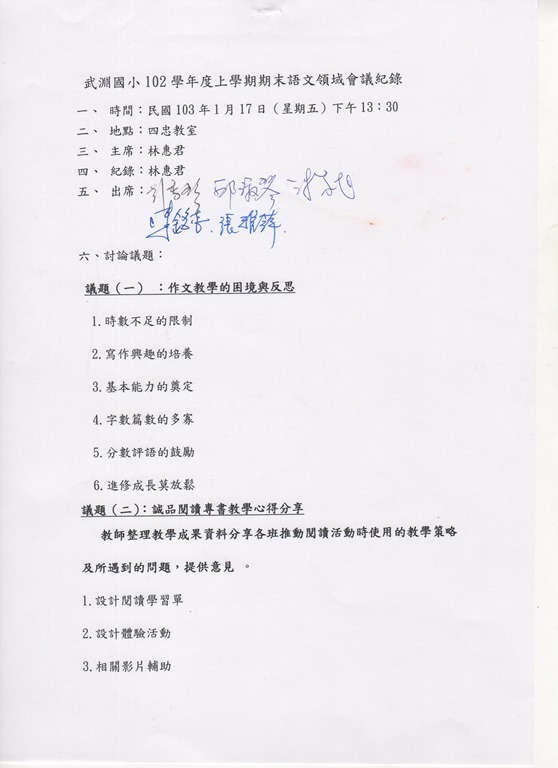 武淵國小102學年度上學期期末語文領域會議紀錄
一、 時間：民國103年1月17日（星期五）下午13：30
二、 地點：四忠教室
三、 主席：林惠君
四、 紀錄：林惠君
五、 出席：
張雅萍
六、討論議題：
議題（一） ：作文教學的困境與反思
1.時數不足的限制
2.寫作興趣的培養
3.基本能力的奠定
4.字數篇數的多寡
5.分數評語的鼓勵
6.進修成長莫放鬆
議題（二）：誠品閱讀專書教學心得分享
教師整理教學成果資料分享各班推動閱讀活動時使用的教學策略
及所遇到的問題，提供意見 。
1.設計閱讀學習單
2.設計體驗活動
3.相關影片輔助